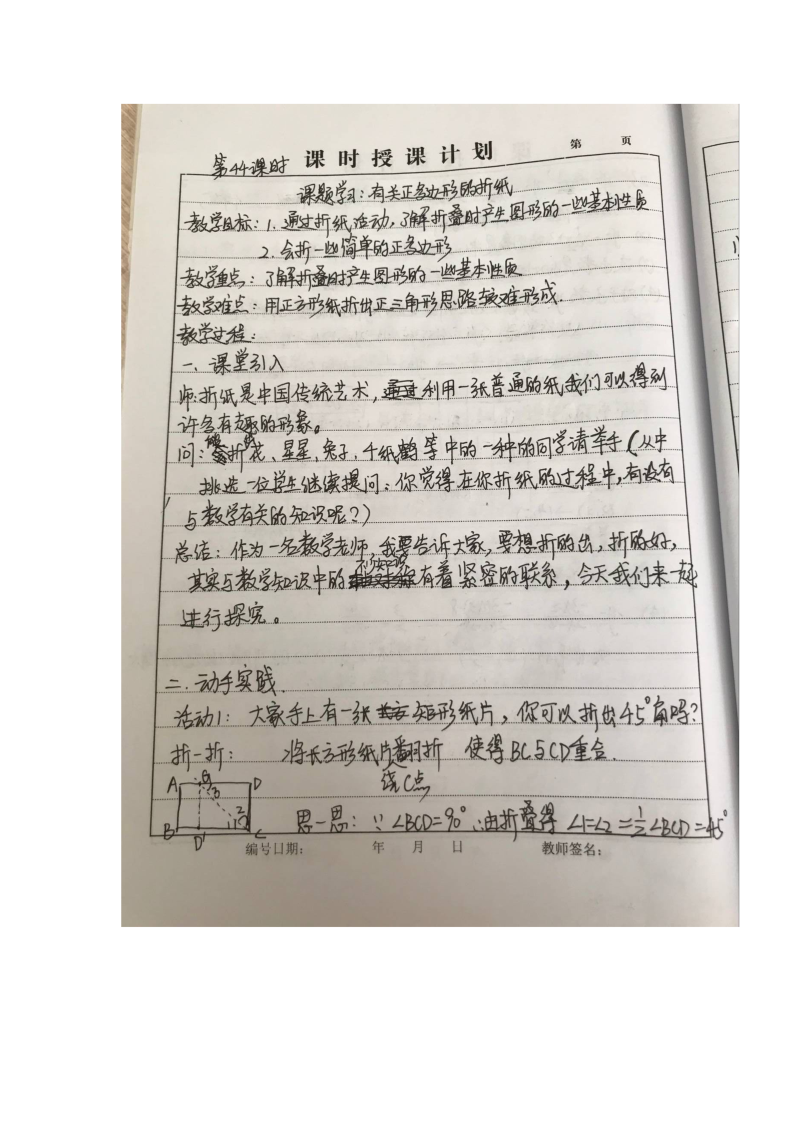 第44课时 课时授课计划 第 页
课题学习:有关正多边形的折纸
教学目标:1.通过折纸活动,了解折叠时产生图形的一些基本性质
2.会折一些简单的正多边形
教学重点:了解折叠时产生图形的一些基本性质
教学难点:用正方形纸折出正三角形思路较难形成.
教学过程:
一、课堂引入
师:折纸是中国传统艺术,利用一张普通的纸我们可以得到
许多有趣的形象。
问:能折花、星星、兔子、千纸鹤等中的一种的同学请举手(从中
挑选一位学生继续提问:你觉得在你折纸的过程中,有没有
与数学有关的知识呢?)
总结:作为一名数学老师,我要告诉大家,要想折的出,折的好,
其实与数学知识中的有着紧密的联系,今天我们来一起
进行探究。
二.动手实践.
活动1:大家手上有一张矩形纸片,你可以折出45°角吗?
折一折: 将长方形纸片翻折 使得BC与CD重合.
绕C点
A D
3
2
1
B D' C
思一思:∵∠BCD=90° ∴由折叠得 ∠1=∠2=1/2∠BCD=45°
编号日期: 年 月 日 教师签名: